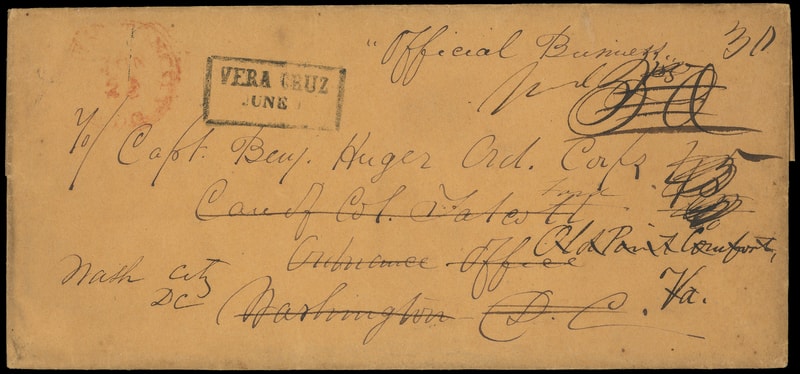 "Official Business
30
VERA CRUZ
JUNE
To/ Capt. Benj. Huger Ord. Corps
Care of Col. Talcott
Ordnance Office
Old Point Comfort,
Va.
Wash City
DC
Washington D. C.